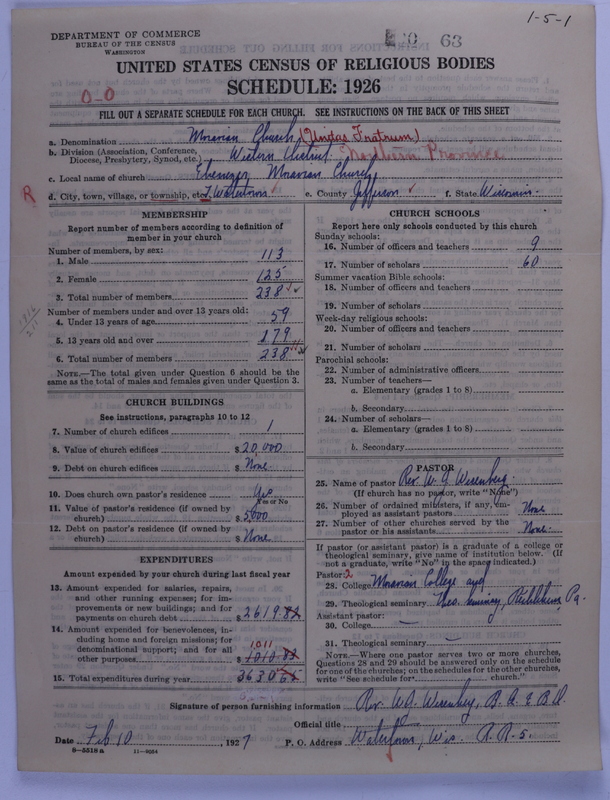 1-5-1
DEPARTMENT OF COMMERCE
BUREAU OF THE CENSUS
WASHINGTON
63
UNITED STATES CENSUS OF RELIGIOUS BODIES
SCHEDULE: 1926
0-0
FILL OUT A SEPARATE SCHEDULE FOR EACH CHURCH. SEE INSTRUCTIONS ON THE BACK OF THIS SHEET
a. Denomination Moravian Church (Unitas Fratrum)
b. Division (Association, Conference, Diocese, Presbytery, Synod, etc.) Western District Northern Province
c. Local name of church Ebenezer Moravian Church
R
d. City, town, village, or township, etc. Watertown e. County Jefferson f. State Wisconsin
MEMBERSHIP
Report number of members according to definition of
member in your church
Number of members, by sex:
1. Male 113
2. Female 125
3. Total number of members 238
Number of members under and over 13 years old:
4. Under 13 years of age 59
5. 13 years old and over 179
6. Total number of members 238
NOTE.—The total given under Question 6 should be
same as the total of males and females given under Question 3.
CHURCH BUILDINGS
See instructions, paragraphs 10 to 12
7. Number of church edifices 1
8. Value of church edifices $20,000
9. Debt on church edifices $ None
10. Does church own pastor's residence Yes
Yes or No
11. Value of pastor's residence (if owned by
church) $ 5,000
12. Debt on pastor's residence (if owned by
church) $ None
EXPENDITURES
Amount expended by your church during last fiscal year
13. Amount expended for salaries, repairs,
and other running expenses; for im-
provements or new buildings; and for
payments on church debt $2619.82
14. Amount expended for benevolences, in-
cluding home and foreign missions; for
denominational support; and for all
1011
other purposes $1010.83
15. Total expenditures during year 3630.65
CHURCH SCHOOLS
Report here only schools conducted by this church
Sunday schools:
16. Number of officers and teachers 9
17. Number of scholars 60
Summer vacation Bible schools:
18. Number of officers and teachers
19. Number of scholars
Week-day religious schools:
20. Number of officers and teachers
21. Number of scholars
Parochial schools:
22. Number of administrative officers
23. Number of teachers—
a. Elementary (grades 1 to 8)
b. Secondary
24. Number of scholars—
a. Elementary (grades 1 to 8)
b. Secondary
PASTOR
25. Name of pastor Rev. W. A. Wesenberg
(If church has no pastor, write "None")
26. Number of ordained ministers, if any, em-
ployed as assistant pastors None
27. Number of other churches served by the
pastor or his assistants None
If pastor (or assistant pastor) is a graduate of a college or
theological seminary, give name of institution below. (If
not a graduate, write "No" in the space indicated.)
Pastor: 2
28. College Moravian College and
29. Theological seminary Theo. Seminary, Bethlehem Pa.
Assistant pastor:
30. College —
31. Theological seminary —
NOTE.—Where one pastor serves two or more churches,
Questions 28 and 29 should be answered only on the schedule
for one of the churches; on the schedules for the other churches,
write "See schedule for church."
Signature of person furnishing information Rev. W. A. Wesenberg, B.A. & B.D.
Official title
Date Feb 10, 1927 P. O. Address Watertown, Wis. R.R.5.
8-5518 a 11-9084